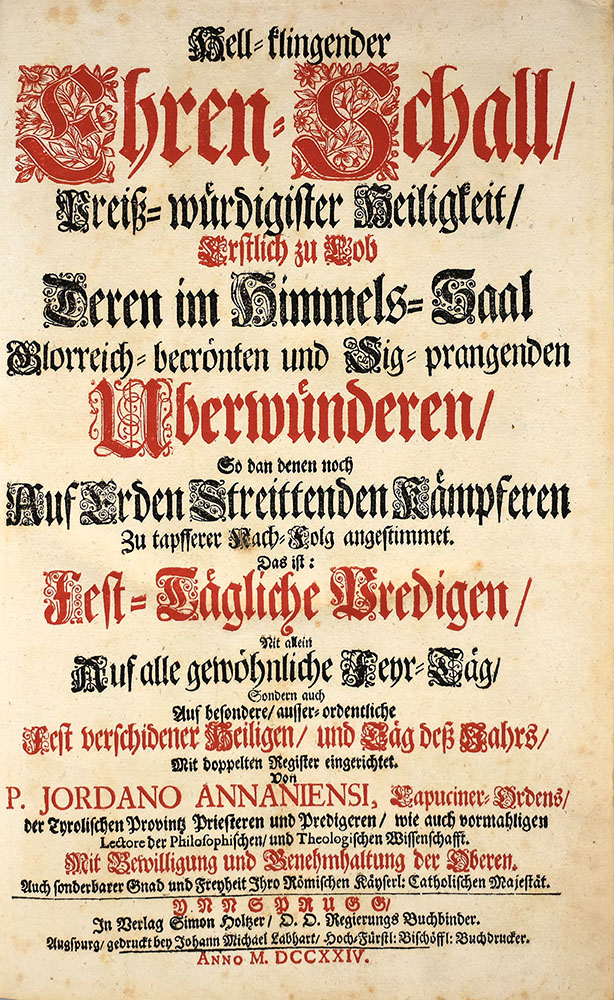 Hell-klingender
Ehren-Schall/
Preiß-würdigister Heiligkeit/
Erstlich zu Lob
Deren im Himmels-Saal
Glorreich-becrönten und Sig-prangenden
Uberwünderen/
So dan denen noch
Auf Erden Streittenden Kämpferen
Zu tapfferer Nach-Folg angestimmet.
Das ist:
Fest-Tägliche Predigen/
Nit allein
Auf alle gewöhnliche Feyr-Täg/
Sondern auch
Auf besondere/ ausser-ordentliche
Fest verschidener Heiligen/ und Täg deß Jahrs/
Mit doppelten Register eingerichtet.
Von
P. JORDANO ANNANIENSI, Capuciner-Ordens/
der Tyrolischen Provintz Priesteren und Predigeren/ wie auch vormahligen
Lectore der Philosophischen/ und Theologischen Wissenschafft.
Mit Bewilligung und Genehmhaltung der Oberen.
Auch sonderbarer Gnad und Freyheit Ihro Römischen Käyserl: Catholischen Majestät.
YNNSPRUGG/
In Verlag Simon Holtzer/ O. O. Regierungs Buchbinder.
Augspurg/ gedruckt bey Johann Michael Labhart/ Hoch-Fürstl: Bischöffl: Buchdrucker.
ANNO M. DCCXXIV.